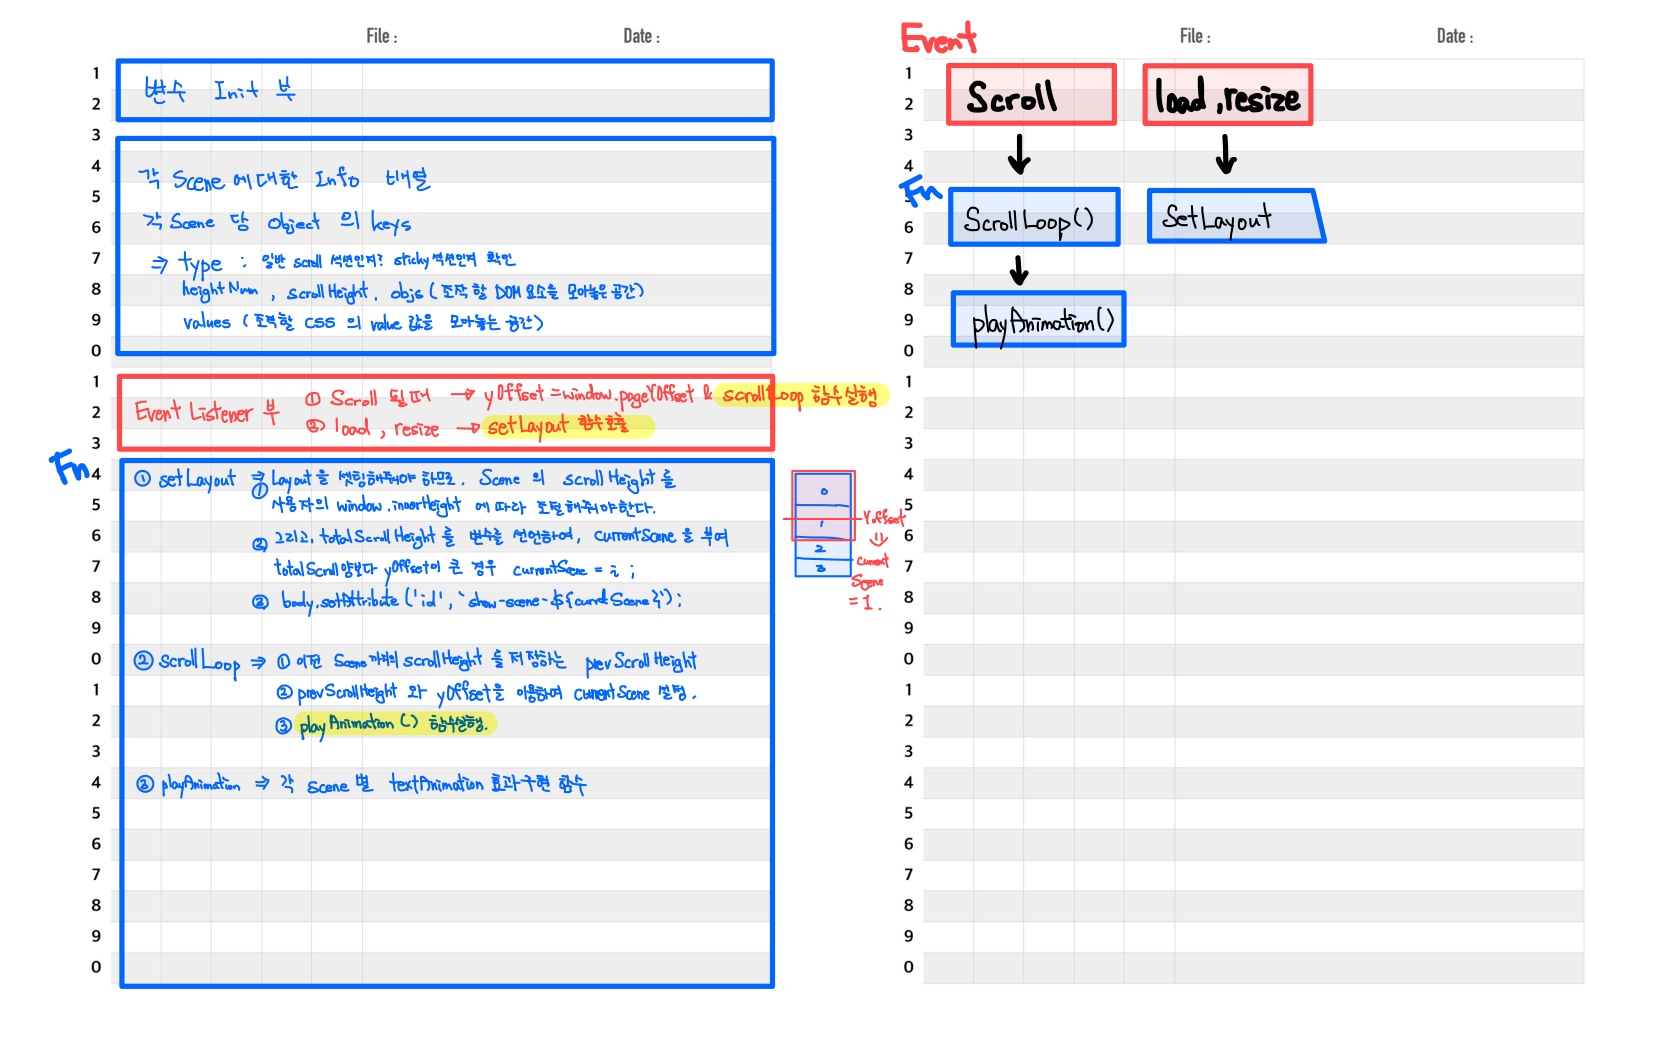 File :
Date :
1
변수 Init 부
2
3
4
각 Scene 에 대한 Info 배열
5
6
각 Scene 당 Object 의 keys
7
⇒ type : 일반 scroll 섹션인지? sticky 섹션인지 확인
8
heightNum, scrollHeight, objs (조작 할 DOM 요소을 모아놓은 공간)
9
values (조작할 CSS 의 value 값을 모아놓는 공간)
0
1
Event Listener 부
① Scroll 될때 → yOffset = window.pageYOffset & scrollLoop 함수실행
2
② load, resize → setLayout 함수호출
3
Fn
4
① setLayout ⇒ ① Layout을 셋팅해줘야 하므로. Scene 의 scrollHeight 를
5
사용자의 window.innerHeight 에 따라 조절해줘야한다.
6
② 그리고, totalScrollHeight 를 변수를 선언하여, currentScene 을 부여
7
totalScroll양보다 yOffset이 큰 경우 currentScene = i ;
8
③ body.setAttribute ('id', `show-scene-${currentScene}`);
9
0
② scrollLoop ⇒ ① 이전 Scene까지의 scrollHeight 를 저장하는 prevScrollHeight
1
② prevScrollHeight 와 yOffset을 이용하여 currentScene 설정.
2
③ playAnimation () 함수실행.
3
4
③ playAnimation ⇒ 각 scene 별 textAnimation 효과구현 함수
5
6
7
8
9
0
0
1
2
3
Yoffset
⇓
current
Scene
= 1.
Event
File :
Date :
1
Scroll
load, resize
2
3
4
Fn
5
6
ScrollLoop()
SetLayout
7
8
9
playAnimation()
0
1
2
3
4
5
6
7
8
9
0
1
2
3
4
5
6
7
8
9
0